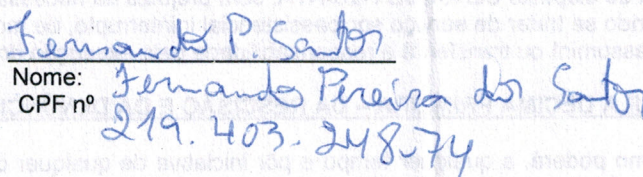 Fernando P. Santos
Nome: Fernando Pereira dos Santos
CPF nº 219.403.248-74